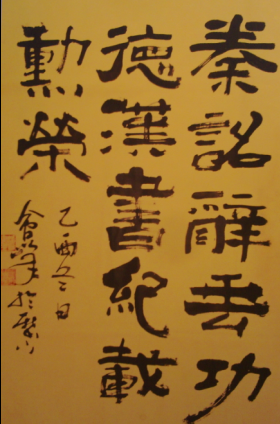 秦詔辭丟功
德漢書紀載
勳榮
乙酉冬日
於歷下